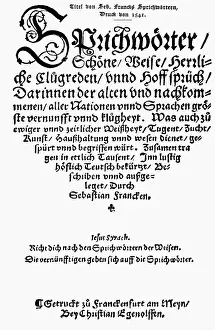 Titel von Seb. Francks Sprichwörtern,
Druck von 1541.
Sprichwörter/
Schöne/ Weise/ Herrli-
che Clůgreden/ vnnd Hoff sprüch/
Darinnen der alten vnd nachkom-
menen/ aller Nationen vnnd Sprachen grös
ste vernunfft vnnd klůgheyt. Was auch zů
ewiger vnnd zeitlicher Weißheyt/ Tugent/ Zucht/
Kunst/ Haußhaltung vnnd wesen dienet/ ge-
spürt vnnd begriffen würt. Zusamen tra
gen in ettlich Tausent/ Inn lustig
höflich Teutsch bekürtzt/ Be-
schriben vnnd außge-
leget/ Durch
Sebastian Francken.
Jesus Syrach.
Richt dich nach den Sprichwörtern der Weisen.
Die vernünfftigen geben sich auff die Sprichwörter.
Getruckt zů Franckenfurt am Meyn/
Bey Christian Egenolffen.